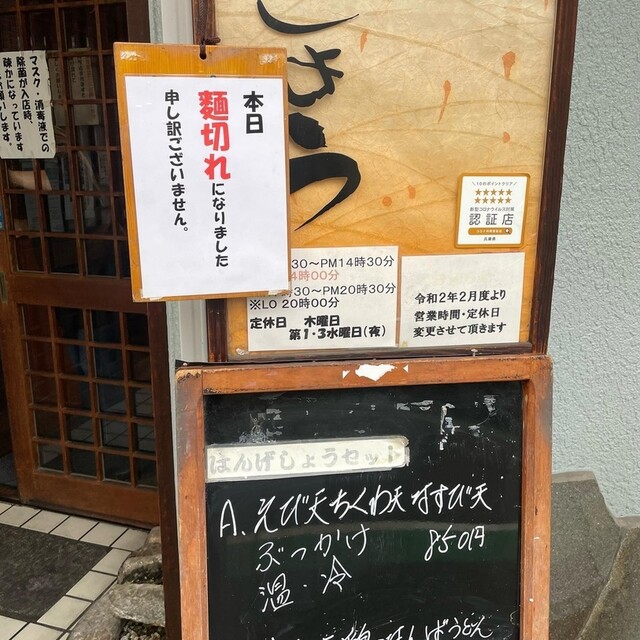 マスク・消毒液での
除菌が入店時、
疎かになっています
本日
麺切れになりました
申し訳ございません。
10のポイントクリア
★★★★★
★★★★★
新型コロナウイルス対策
認証店
兵庫県
30〜PM14時30分
4時00分
30〜PM20時30分
※LO 20時00分
定休日 木曜日
第1・3水曜日(夜)
令和2年2月度より
営業時間・定休日
変更させて頂きます
はんげしょうセット
A、えび天ちくわ天なすび天
ぶっかけ 850円
温・冷